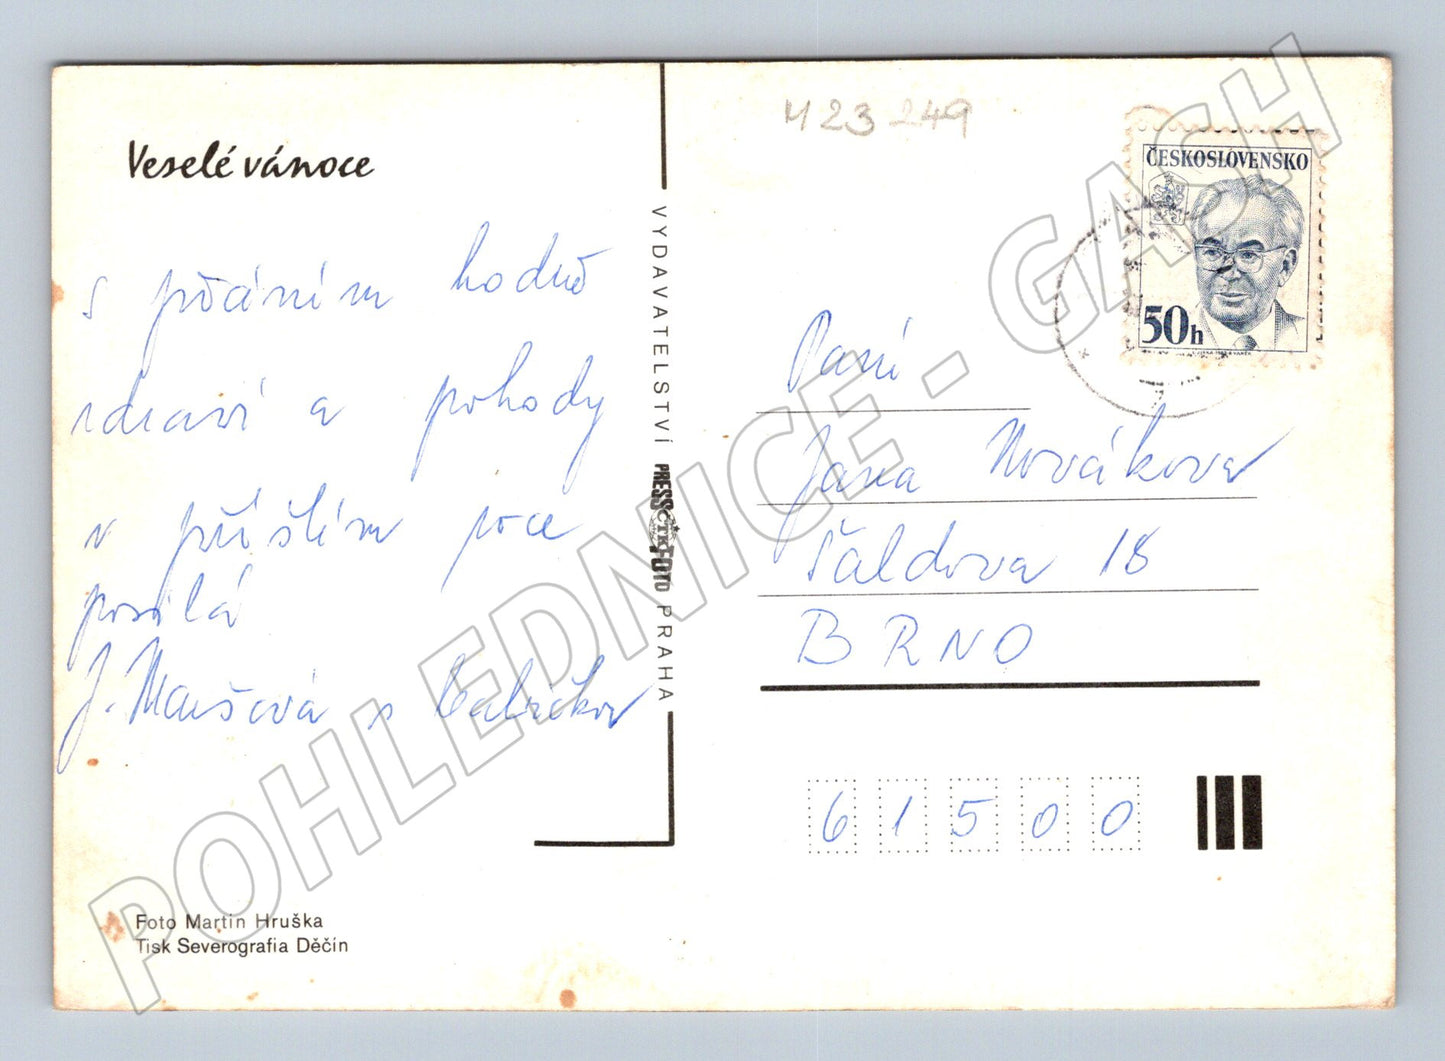 Veselé vánoce
s přáním hodně
zdraví a pohody
v příštím roce
posílá
J. Maušová s
VYDAVATELSTVÍ PRESSFOTO PRAHA
ČTK
Foto Martin Hruška
Tisk Severografia Děčín
M23 249
ČESKOSLOVENSKO
50h
Paní
Jana Nováková
Šaldova 18
BRNO
61500
POHLEDNICE - GASH